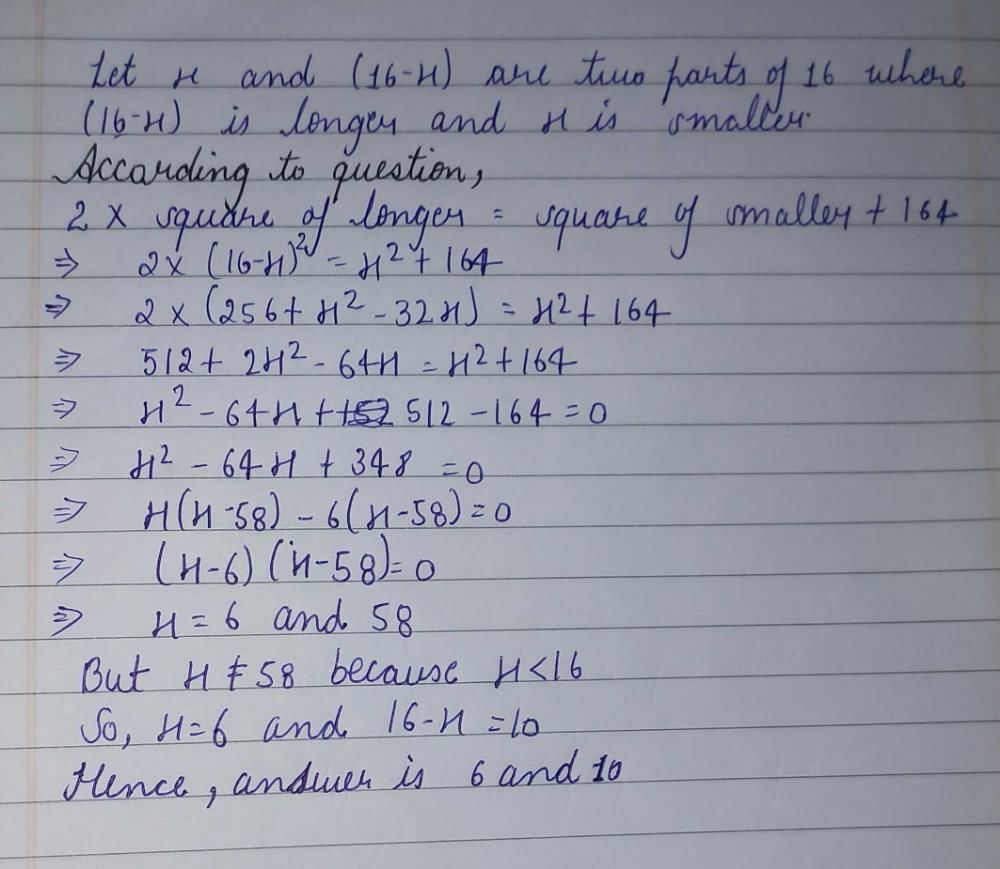 Let x and (16-x) are two parts of 16 where
(16-x) is longer and x is smaller.
According to question,
2 × square of longer = square of smaller + 164
⇒ 2× (16-x)² = x² + 164
⇒ 2 × (256 + x² - 32x) = x² + 164
⇒ 512 + 2x² - 64x = x² + 164
⇒ x² - 64x + 512 - 164 = 0
⇒ x² - 64x + 348 = 0
⇒ x(x-58) - 6(x-58) = 0
⇒ (x-6) (x-58) = 0
⇒ x = 6 and 58
But x ≠ 58 because x < 16
So, x = 6 and 16-x = 10
Hence, answer is 6 and 10